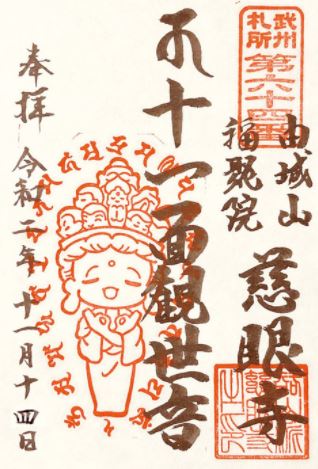 武州
札所
第六十四番
由城山
福聚院
慈眼寺
十一面觀世音
奉拝 令和二年十一月十四日